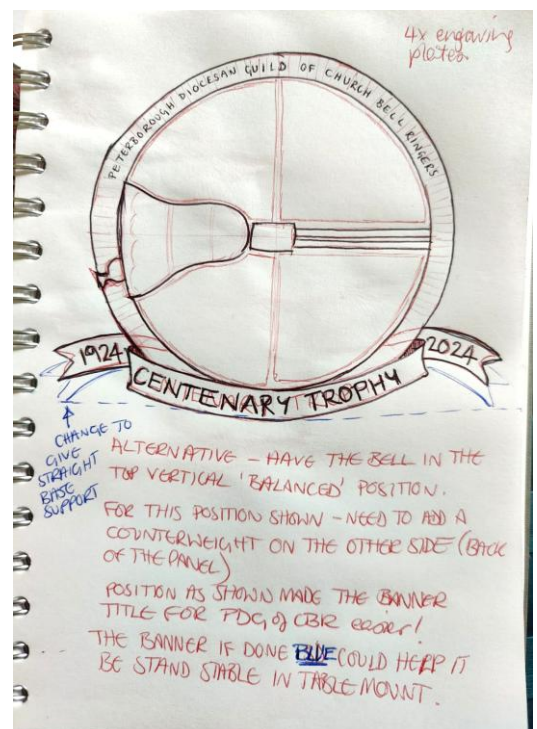 4x engraving
plates
PETERBOROUGH DIOCESAN GUILD OF CHURCH BELL RINGERS
1924
2024
CENTENARY TROPHY
CHANGE TO
GIVE
STRAIGHT
BASE
SUPPORT
ALTERNATIVE - HAVE THE BELL IN THE
TOP VERTICAL 'BALANCED' POSITION.
FOR THIS POSITION SHOWN - NEED TO ADD A
COUNTERWEIGHT ON THE OTHER SIDE (BACK
OF THE PANEL)
POSITION AS SHOWN MADE THE BANNER
TITLE FOR PDG of CBR easier!
THE BANNER IF DONE BLUE COULD HELP IT
BE STAND STABLE IN TABLE MOUNT.